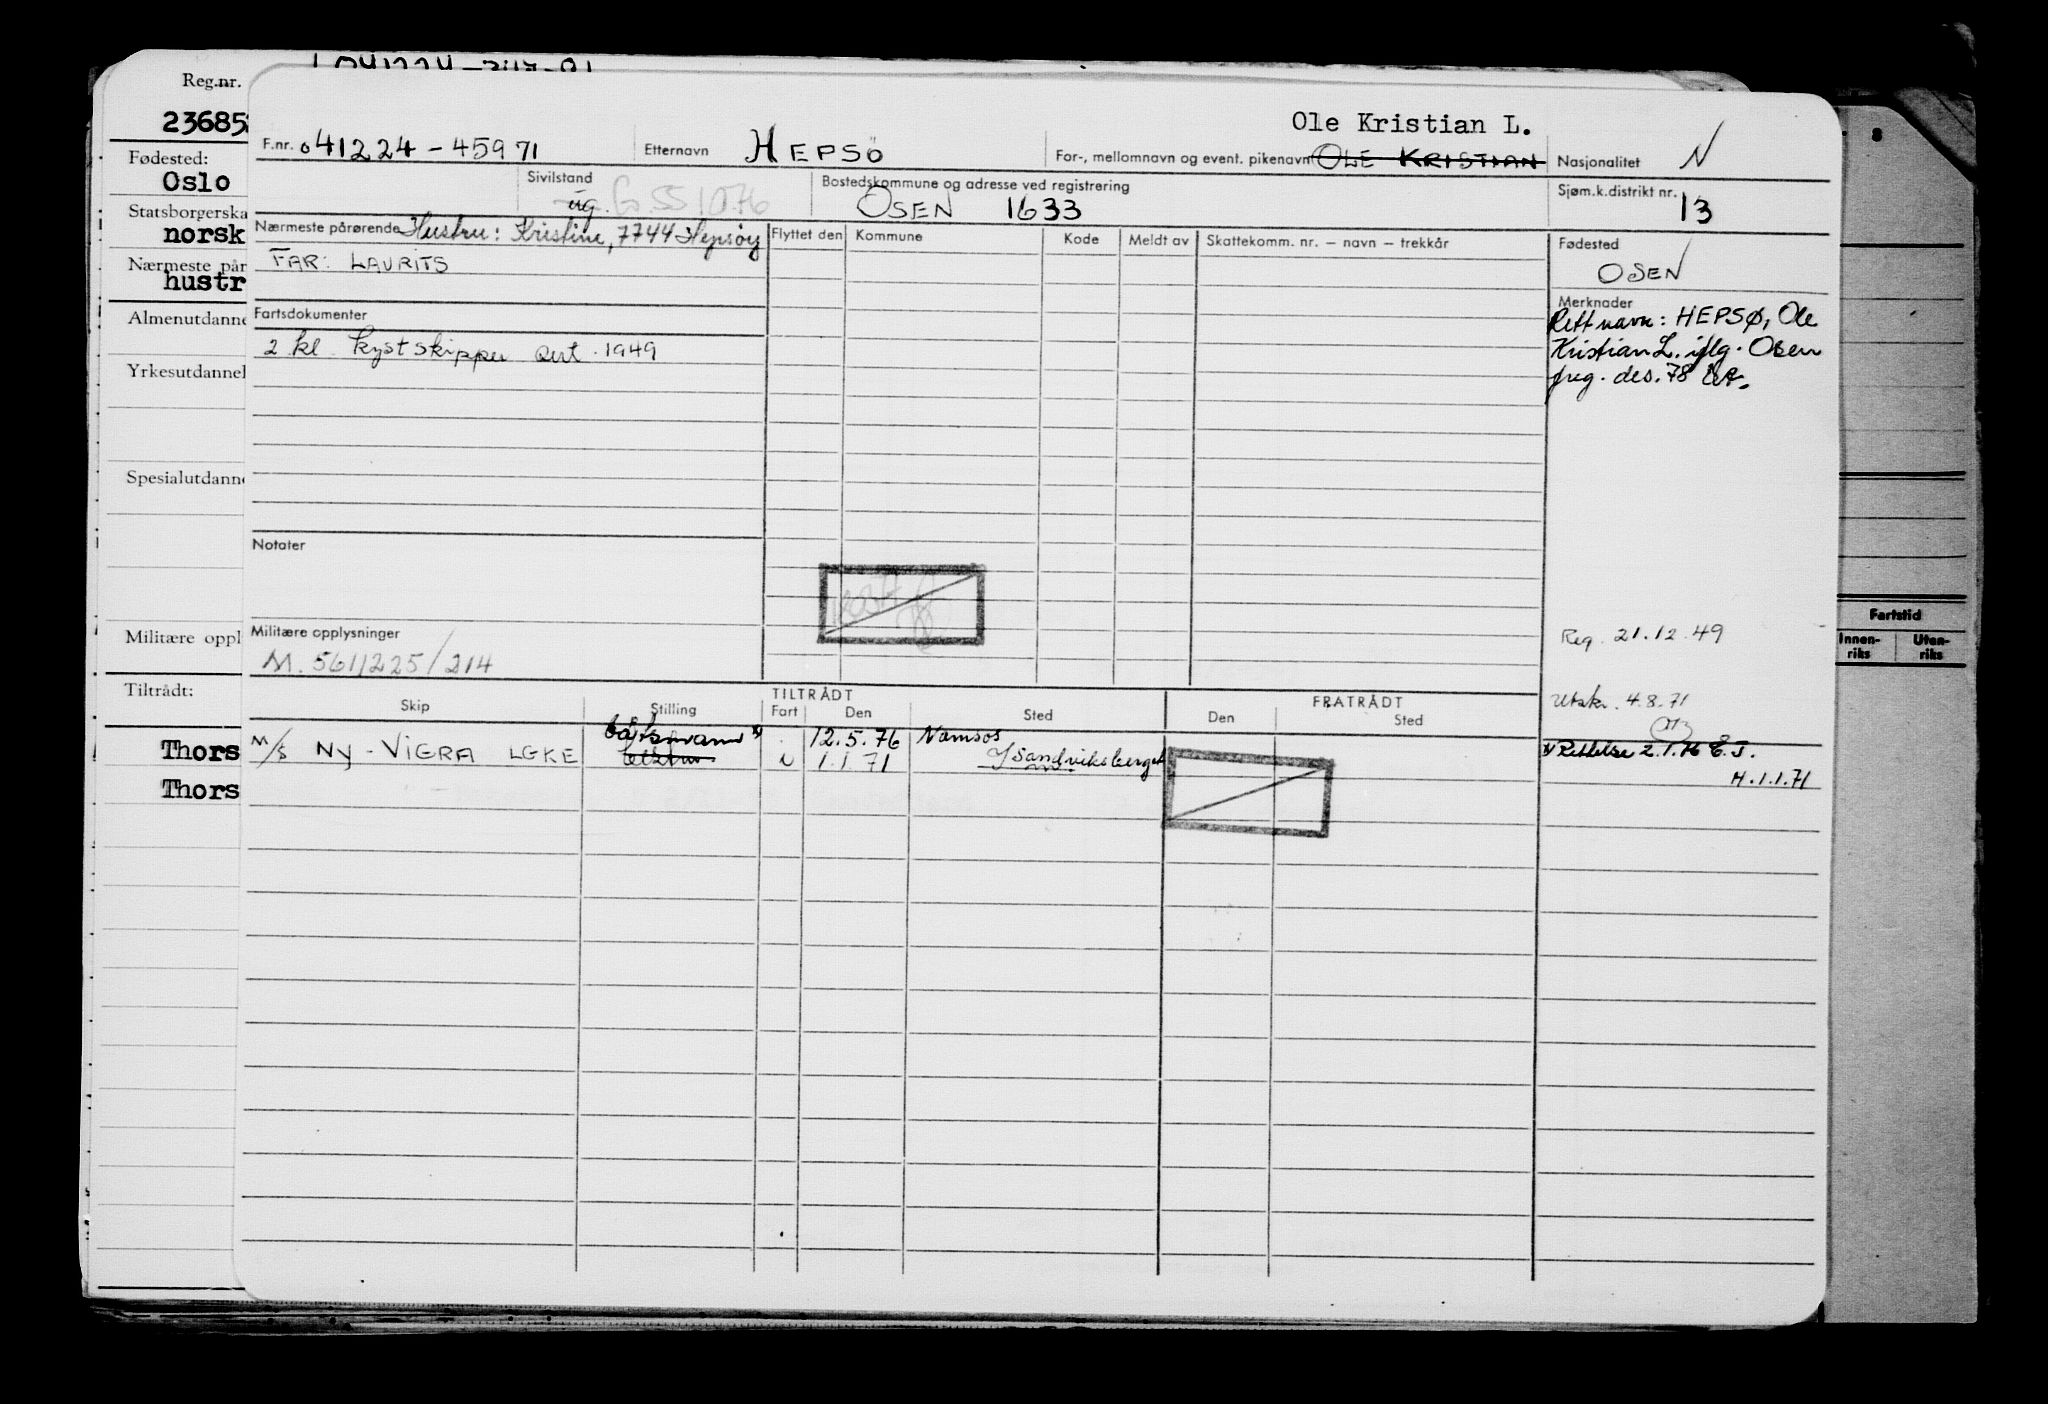 Reg.nr.
23685
Fødested:
Oslo
Statsborgerska
norsk
Nærmeste pår
hustr
Almenutdanne
Yrkesutdannel
Spesialutdanne
Militære oppl
Tiltrådt:
Thors
Thors
Ole Kristian L.
F.nr. 041224-45971 Etternavn HEPSÖ For-, mellomnavn og event. pikenavn OLE KRISTIAN Nasjonalitet N
Sivilstand ug. G 551076 Bostedskommune og adresse ved registrering OSEN 1633 Sjøm.k.distrikt nr. 13
Nærmeste pårørende Hustru: Kristine, 7744 Hepsøy
FAR: LAURITS
Flyttet den Kommune Kode Meldt av Skattekomm. nr. – navn – trekkår
Fødested
OSEN
Merknader
Rett navn: HEPSØ, Ole
Kristian L. iflg. Osen
freg. des. 78
Fartsdokumenter
2 kl. kystskipper sert. 1949
Notater
Militære opplysninger
M. 5611225/214
Reg. 21.12.49
Utskr. 4.8.71
TILTRÅDT FRATRÅDT
Skip Stilling Fart Den Sted Den Sted
båtsmann x) 12.5.76 Namsos
M/S NY-VIGRA LGKE N 1.1.71 Sandviksberget
x) Rettelse 2.1.76 E.J.
H.1.1.71
8
Fartstid
Innen-
riks
Uten-
riks